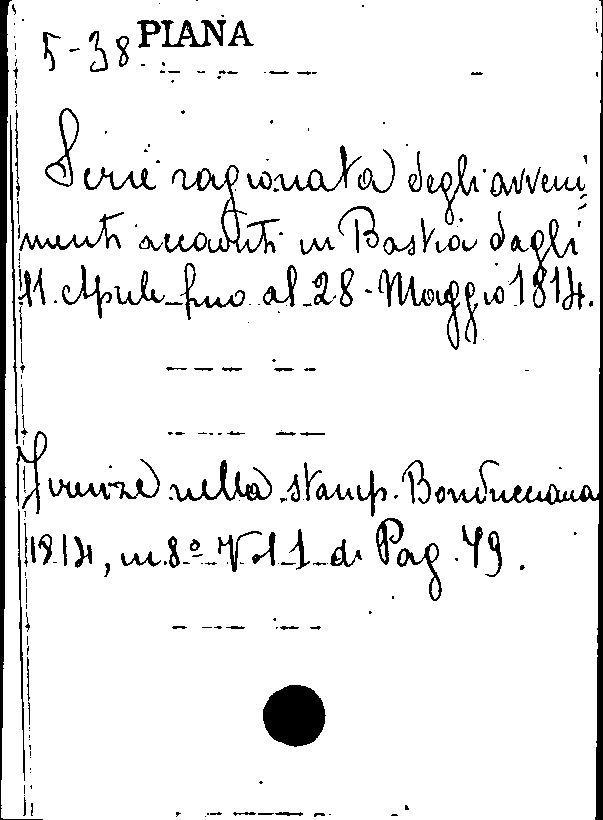 5-38 PIANA
Serie ragionata degli avveni=
menti accaduti in Bastia dagli
11. Aprile fino al 28. Maggio 1814.
Firenze nella stamp. Bonducciana
1814, in 8º Vol 1 di Pag. 79.